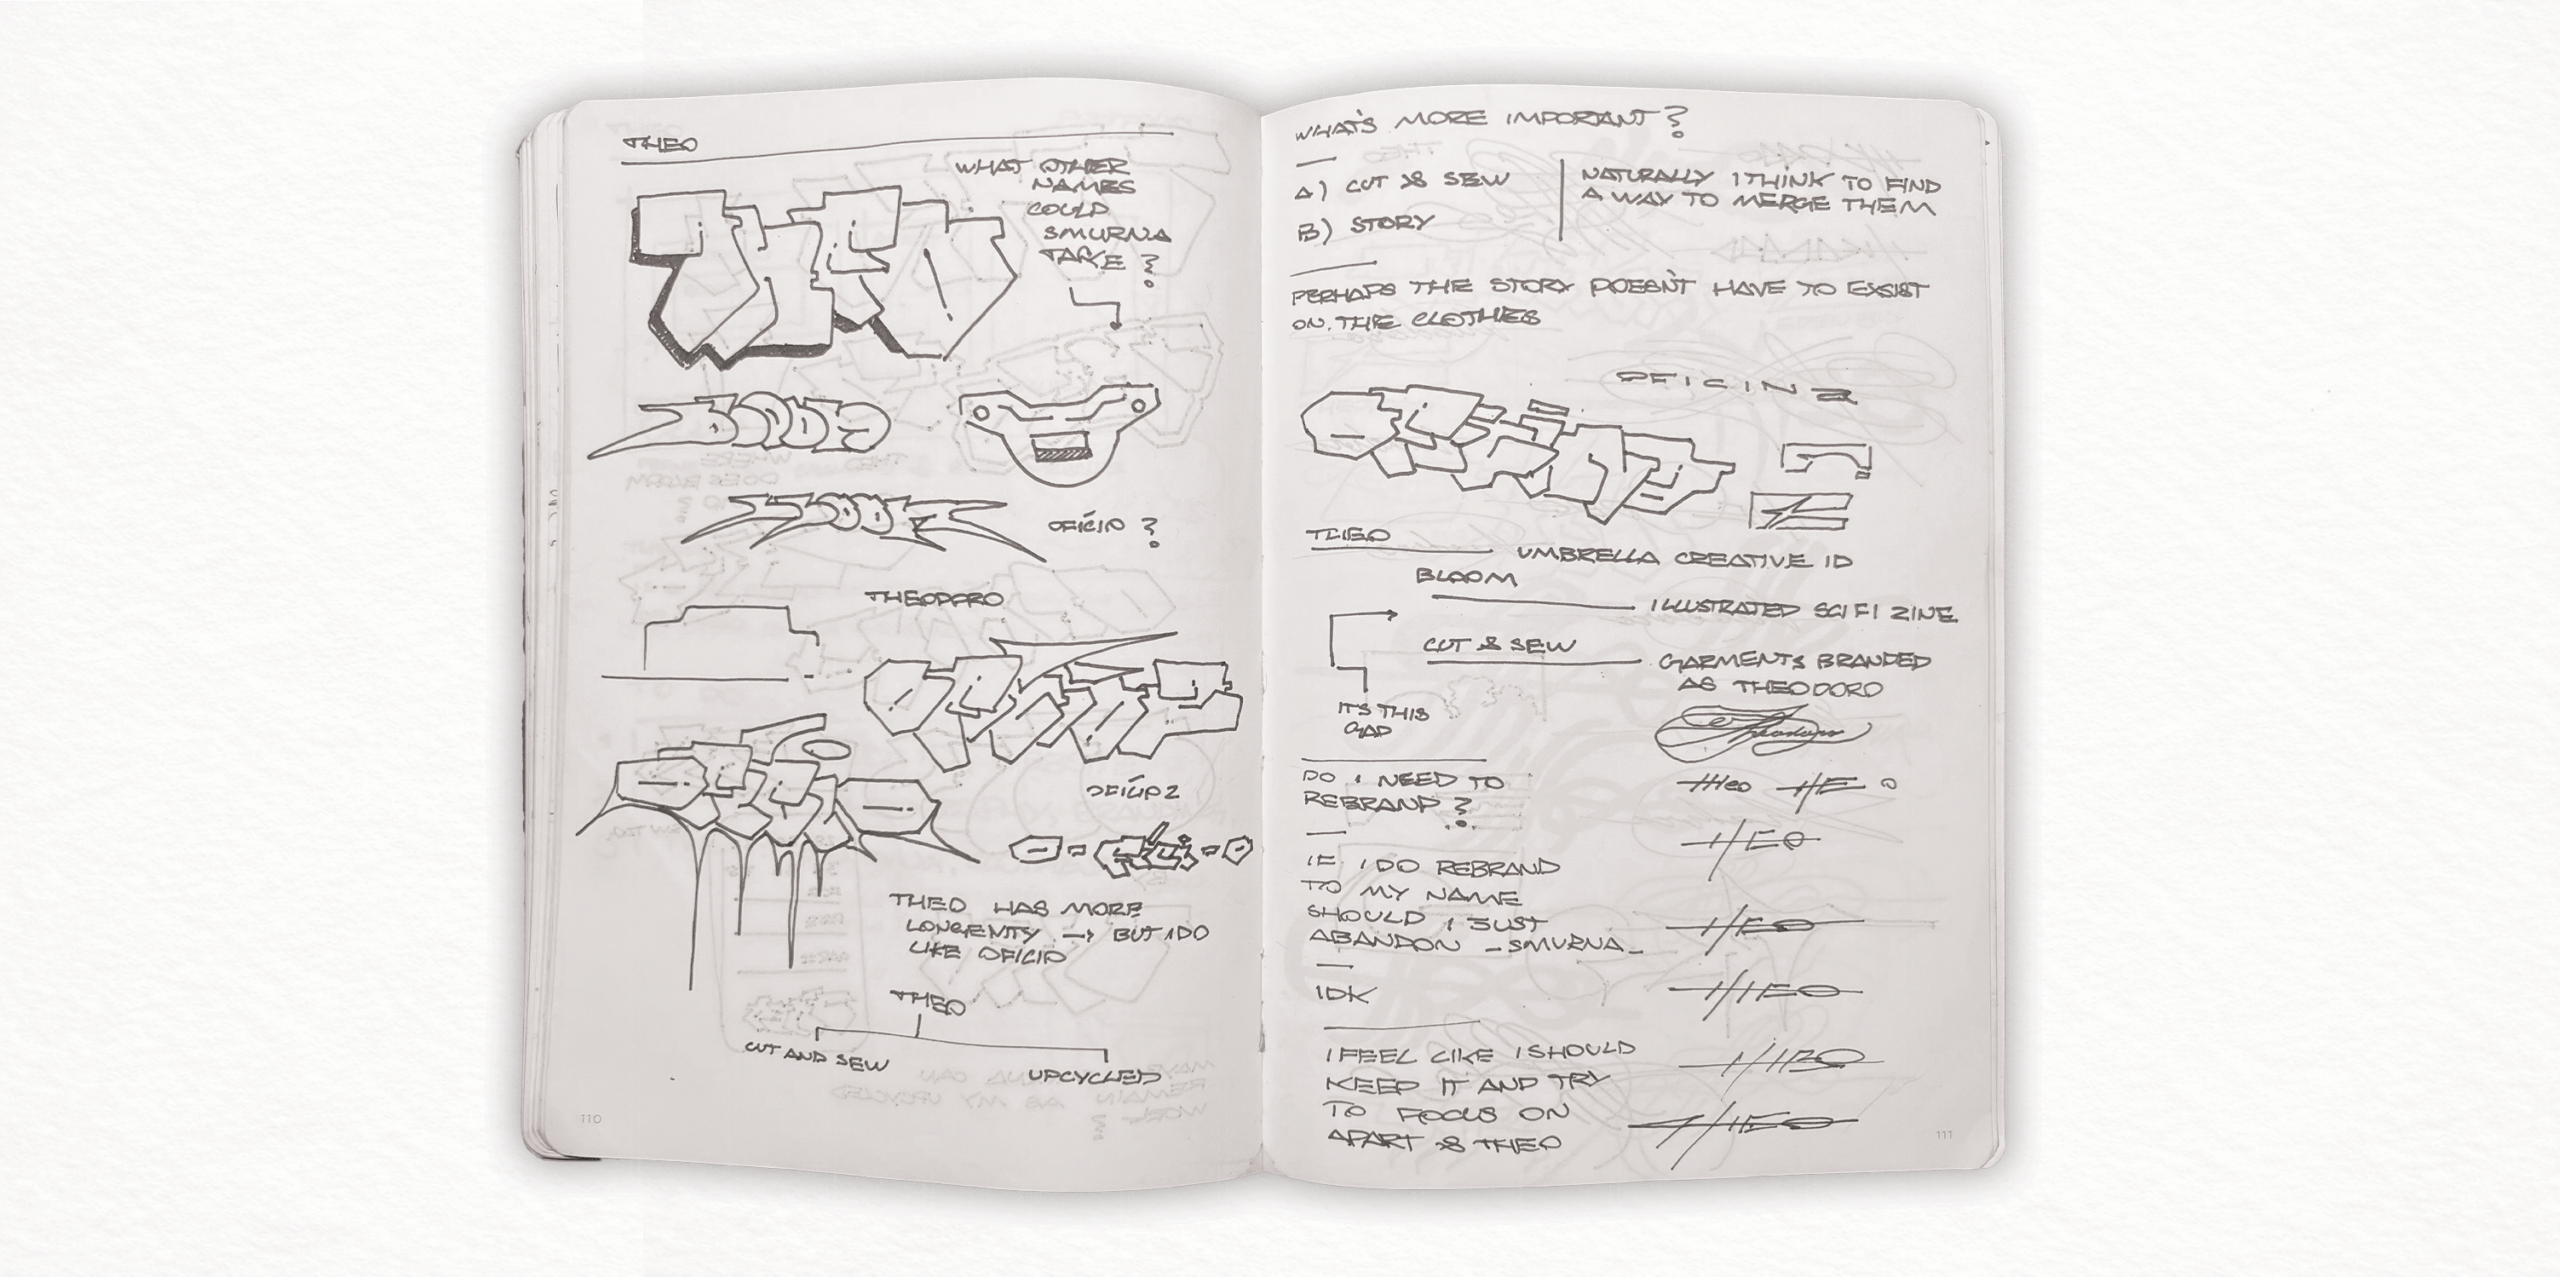 THEO
WHAT OTHER
NAMES
COULD
SMURNA
TAKE?
THEO
OFÍCIO?
THEODORO
OFÍCIO2
THEO HAS MORE
LONGENITY → BUT I DO
LIKE OFÍCIO
THEO
CUT AND SEW
UPCYCLED
110
WHAT'S MORE IMPORTANT?
A) CUT & SEW
B) STORY
NATURALLY I THINK TO FIND
A WAY TO MERGE THEM
PERHAPS THE STORY DOESN'T HAVE TO EXSIST
ON THE CLOTHES
OFICIN
THEO
UMBRELLA CREATIVE ID
BLOOM
ILLUSTRATED SCI FI ZINE
CUT & SEW
GARMENTS BRANDED
AS THEODORO
IT'S THIS
GAP
Theodoro
DO I NEED TO
REBRAND?
THEO THE O
THEO
IF I DO REBRAND
TO MY NAME
SHOULD I JUST
ABANDON -SMURNA-
THEO
IDK
THEO
I FEEL LIKE I SHOULD
KEEP IT AND TRY
TO FOCUS ON
APART & THEO
THEO
THEO
111